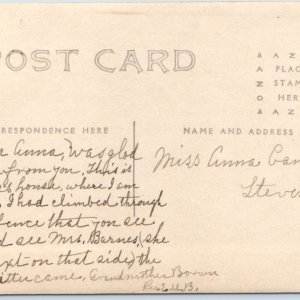 POST CARD
A A Z
A PLAC
Z STAM
O HER
A Z
RRESPONDENCE HERE
NAME AND ADDRESS
Anna, was glad
from you, This is
house, where I am
I had climbed through
fence that you see
see Mrs. Barnes, she
on that side, the
came, Grandmother Brown
Miss Anna
Steve